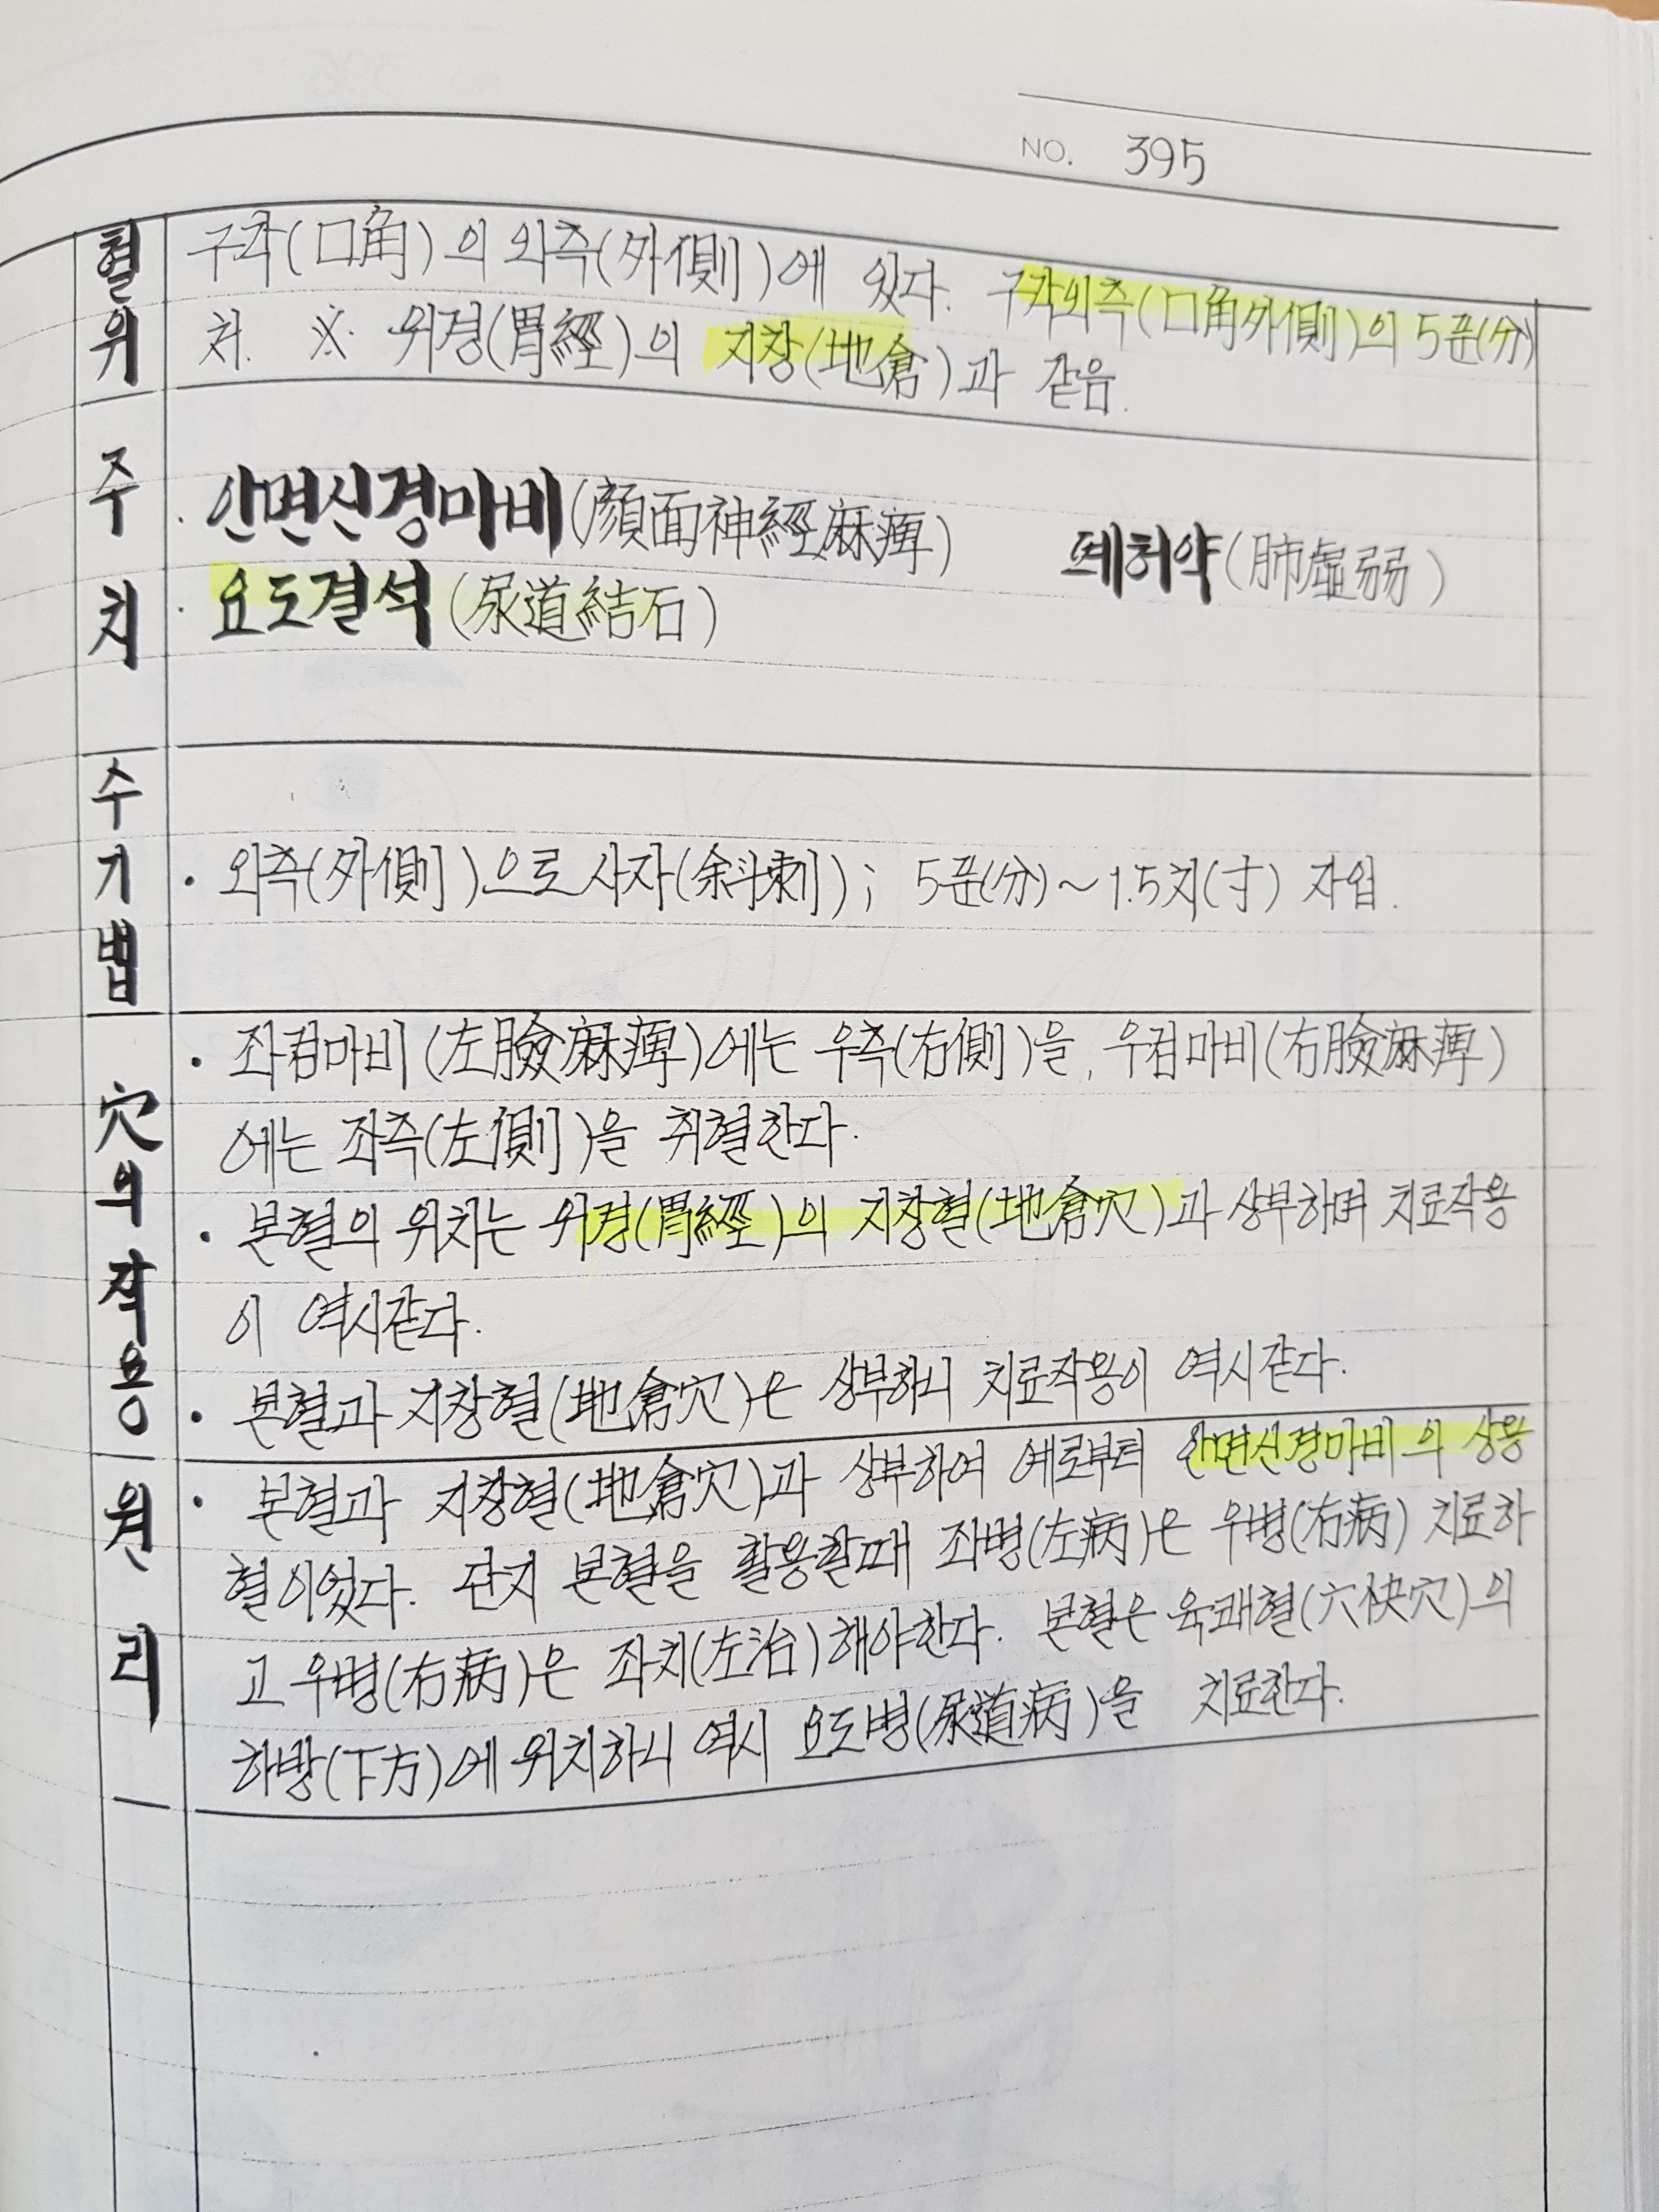 NO. 395
혈위
구각(口角)의 외측(外側)에 있다. 구각외측(口角外側)의 5푼(分)
처. ※ 위경(胃經)의 지창(地倉)과 같음.
주치
· 안면신경마비(顔面神經麻痺) 폐허약(肺虛弱)
· 요도결석(尿道結石)
수기법
· 외측(外側)으로 사자(斜刺); 5푼(分)~1.5치(寸) 자입.
穴의작용
· 좌검마비(左臉麻痺)에는 우측(右側)을, 우검마비(右臉麻痺)
에는 좌측(左側)을 취혈한다.
· 본혈의 위치는 위경(胃經)의 지창혈(地倉穴)과 상부하며 치료작용
이 역시같다.
· 본혈과 지창혈(地倉穴)은 상부하니 치료작용이 역시같다.
원리
· 본혈과 지창혈(地倉穴)과 상부하여 예로부터 안면신경마비의 상용
혈이었다. 단지 본혈을 활용할때 좌병(左病)은 우병(右病) 치료하
고 우병(右病)은 좌치(左治)해야한다. 본혈은 육쾌혈(六快穴)의
하방(下方)에 위치하니 역시 요도병(尿道病)을 치료한다.